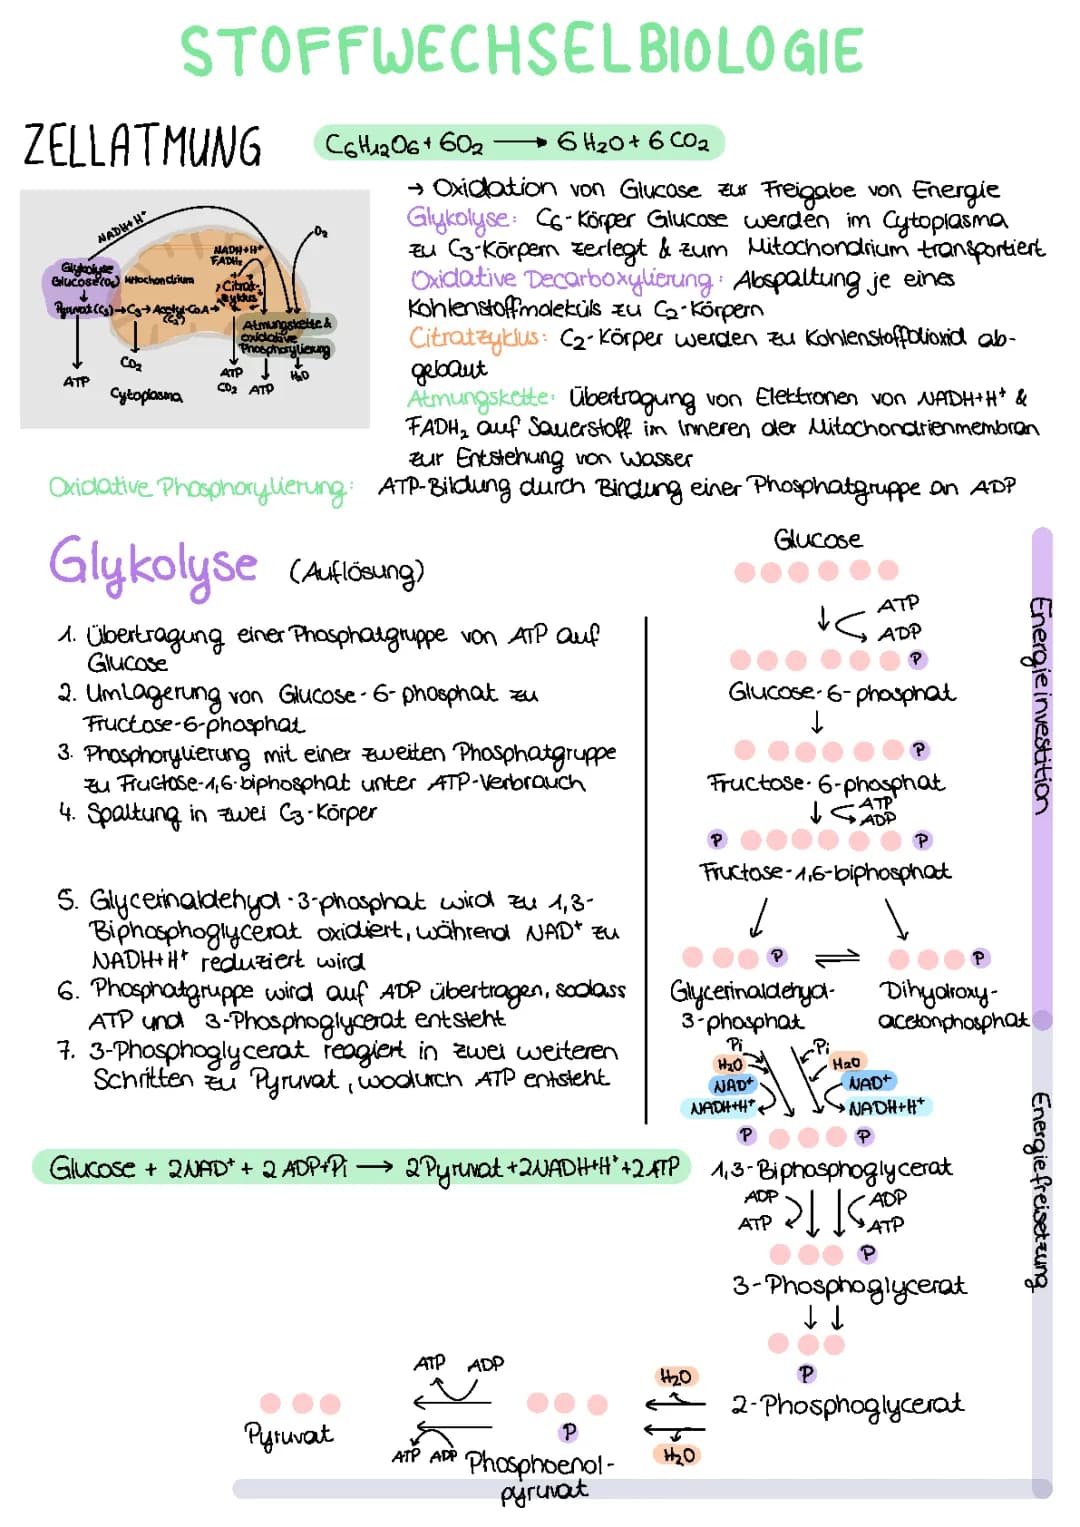 STOFFWECHSELBIOLOGIE
ZELLATMUNG
C6H12O6 + 6O2 → 6 H2O + 6 CO2
→ Oxidation von Glucose zur Freigabe von Energie
Glykolyse: C6-Körper Glucose werden im Cytoplasma
zu C3-Körpern zerlegt & zum Mitochondrium transportiert
Oxidative Decarboxylierung: Abspaltung je eines
Kohlenstoffmoleküls zu C2-Körpern
Citratzyklus: C2-Körper werden zu Kohlenstoffdioxid ab-
gebaut
Atmungskette: Übertragung von Elektronen von NADH+H+ &
FADH2 auf Sauerstoff im Inneren der Mitochondrienmembran
zur Entstehung von Wasser
Oxidative Phosphorylierung: ATP-Bildung durch Bindung einer Phosphatgruppe an ADP
NADH+H+
O2
NADH+H+
FADH2
Glykolyse
Glucose (C6)
Mitochondrium
Citrat-
zyklus
Pyruvat (C3) → C3 → Acetyl-CoA →
(C2)
Atmungskette &
oxidative
Phosphorylierung
ATP
CO2
Cytoplasma
ATP
CO2
ATP
H2O
Glykolyse (Auflösung)
1. Übertragung einer Phosphatgruppe von ATP auf
Glucose
2. Umlagerung von Glucose-6-phosphat zu
Fructose-6-phosphat
3. Phosphorylierung mit einer zweiten Phosphatgruppe
zu Fructose-1,6-biphosphat unter ATP-Verbrauch
4. Spaltung in zwei C3-Körper
5. Glycerinaldehyd-3-phosphat wird zu 1,3-
Biphosphoglycerat oxidiert, während NAD+ zu
NADH+H+ reduziert wird
6. Phosphatgruppe wird auf ADP übertragen, sodass
ATP und 3-Phosphoglycerat entsteht
7. 3-Phosphoglycerat reagiert in zwei weiteren
Schritten zu Pyruvat, wodurch ATP entsteht
Glucose + 2NAD+ + 2 ADP+Pi → 2Pyruvat+2NADH+H+ +2ATP
Glucose
ATP
ADP
P
Glucose-6-phosphat
P
Fructose-6-phosphat
ATP
ADP
P P
Fructose-1,6-biphosphat
P P
Glycerinaldehyd-
3-phosphat
Dihydroxy-
acetonphosphat
Pi Pi
H2O H2O
NAD+ NAD+
NADH+H+ NADH+H+
P P
1,3-Biphosphoglycerat
ADP ADP
ATP ATP
P
3-Phosphoglycerat
P
2-Phosphoglycerat
H2O
H2O
P
Phosphoenol-
pyruvat
ATP ADP
ATP ADP
Pyruvat
Energieinvestition
Energiefreisetzung